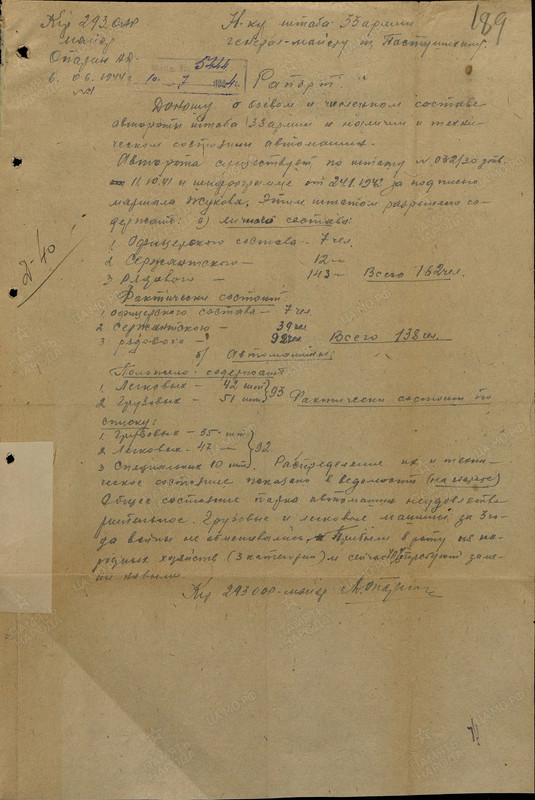 К-р 293 ОАР
майор
Опарин А.А.
6. 06. 1944 г
№1
Н-ку штаба 33 армии
генерал-майору т.
189
5244
10 7 1944 г.
Рапорт.
Доношу о боевом и численном составе
автороты штаба 33 армии и наличии и техни-
ческом состоянии автомашин.
Авторота существует по штату № 032/30 утв.
11.10.41 и шифротелеграмме от 24.1.1943 за подписью
маршала Жукова. Этим штатом разрешено со-
держать: а) личного состава:
1. Офицерского состава - 7 чел.
2 Сержантского - 12 -
3 рядового - 143 - Всего 162 чел.
Фактически состоит
1. офицерского состава - 7 чел.
2 Сержантского - 39 чел
3 рядового - 92 чел Всего 138 чел.
б) Автомашины:
Положено содержать
1. Легковых - 42 шт } 93
2. Грузовых - 51 шт. Фактически состоит по
списку:
1. Грузовых - 35 шт
2 Легковых - 47 - } 92
3 Специальных 10 шт. Распределение их и техни-
ческое состояние показано в ведомости
Общее состояние парка автомашин неудовлетво-
рительное. Грузовые и легковые машины за 3 го-
да войны не обновлялись. Прибыли в роту из на-
родных хозяйств (3 категории) и сейчас требуют заме-
ны новыми.
К-р 293 ОАР - майор А. Опарин
2-10